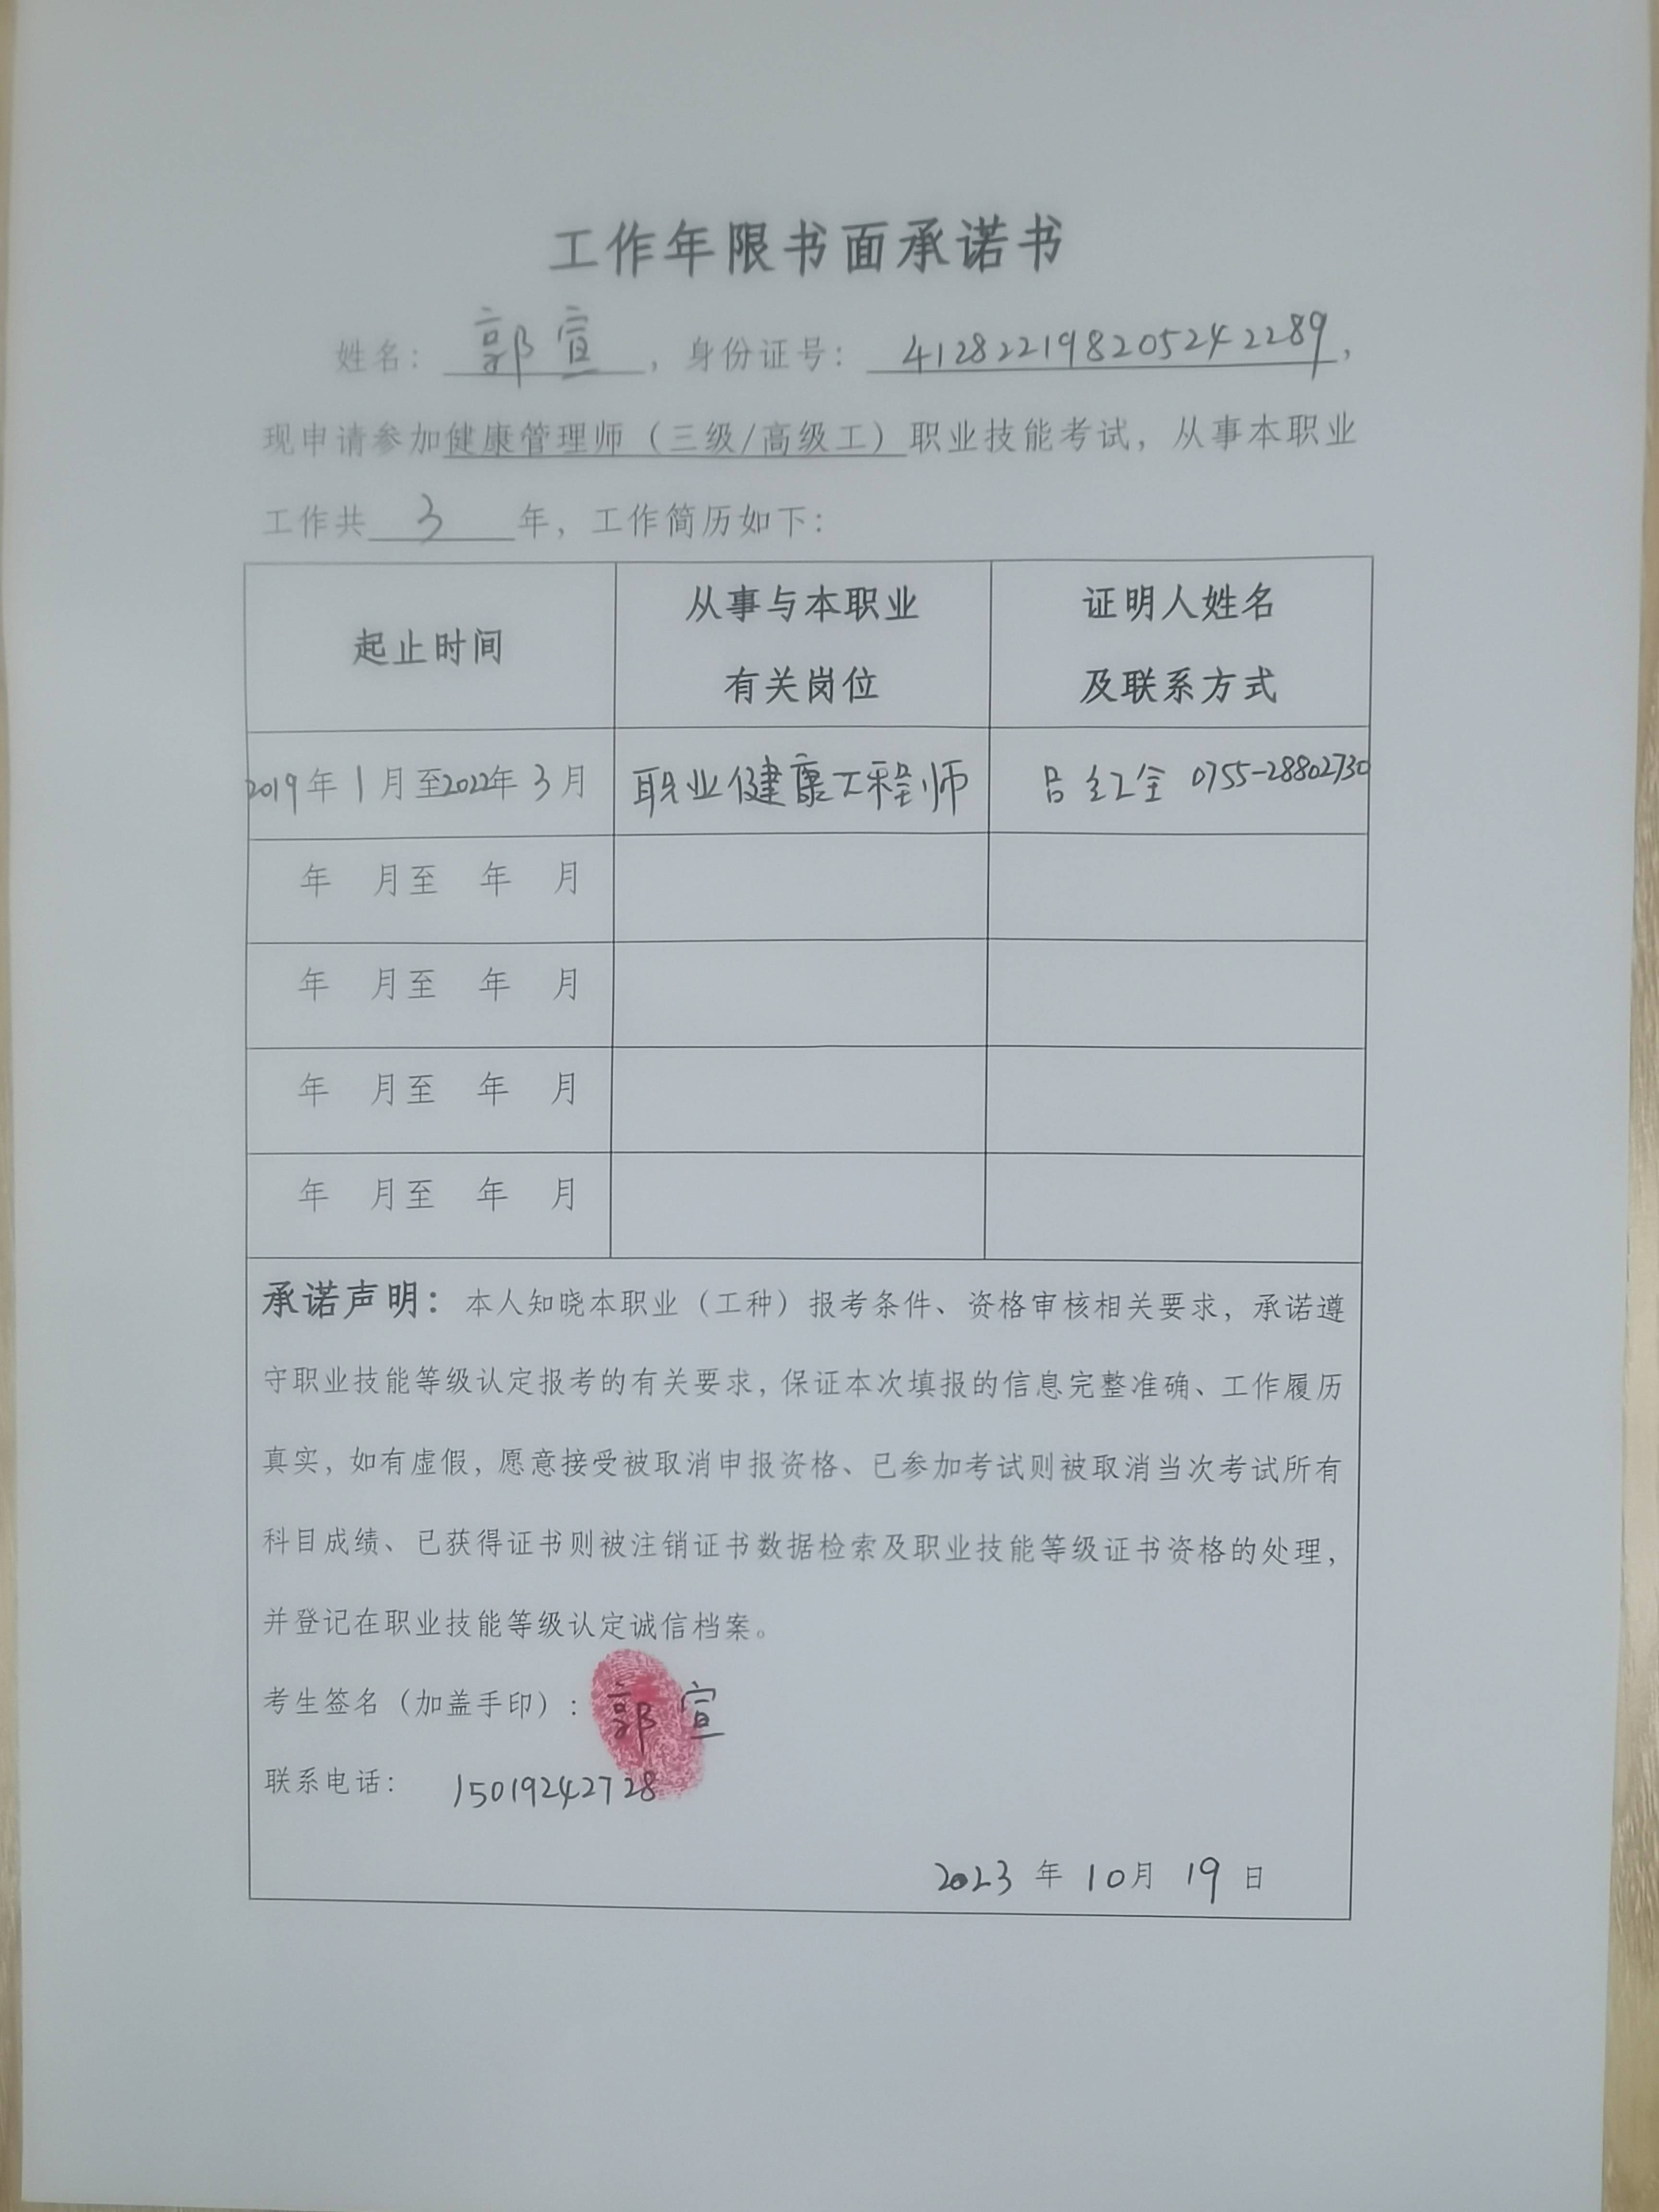 工作年限书面承诺书
姓名：郭宣，身份证号：412822198205242289，
现申请参加健康管理师（三级/高级工）职业技能考试，从事本职业
工作共3年，工作简历如下：
起止时间
从事与本职业
有关岗位
证明人姓名
及联系方式
2019年1月至2022年3月 职业健康工程师 吕红全 0755-28802730
年 月至 年 月
年 月至 年 月
年 月至 年 月
年 月至 年 月
承诺声明：本人知晓本职业（工种）报考条件、资格审核相关要求，承诺遵
守职业技能等级认定报考的有关要求，保证本次填报的信息完整准确、工作履历
真实，如有虚假，愿意接受被取消申报资格、已参加考试则被取消当次考试所有
科目成绩、已获得证书则被注销证书数据检索及职业技能等级证书资格的处理，
并登记在职业技能等级认定诚信档案。
考生签名（加盖手印）：郭宣
联系电话：15019242728
2023年10月19日